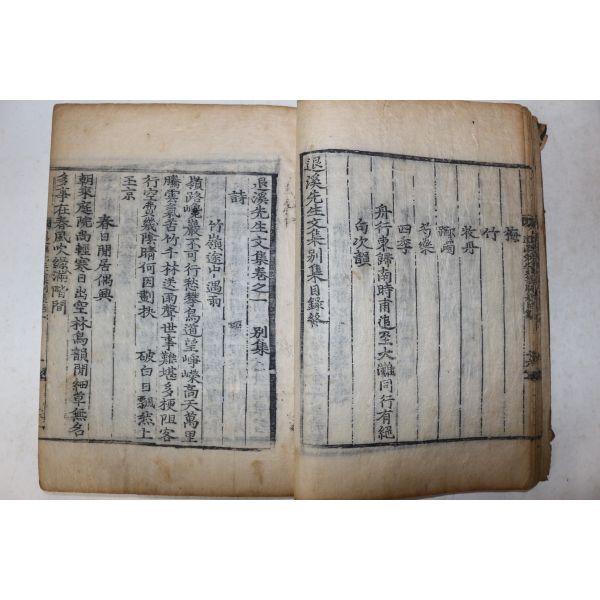 梅
竹
牧丹
躑躅
芍藥
四季
舟行東歸南時甫追至大灘同行有絶
句次韻
退溪先生文集別集目錄終
退溪先生文集卷之一 別集
詩
竹嶺途中遇雨
嶺路巉巖不可行愁攀鳥道望崢嶸高天萬里
騰雲氣苦竹千林送雨聲世事難堪多梗阻客
行空費幾陰晴何因劃抉 破白日飄然上
玉京
春日閒居偶興
朝來庭院尙輕寒日出空林鳥韻閒細草無名
多事在春風吹綠滿階間